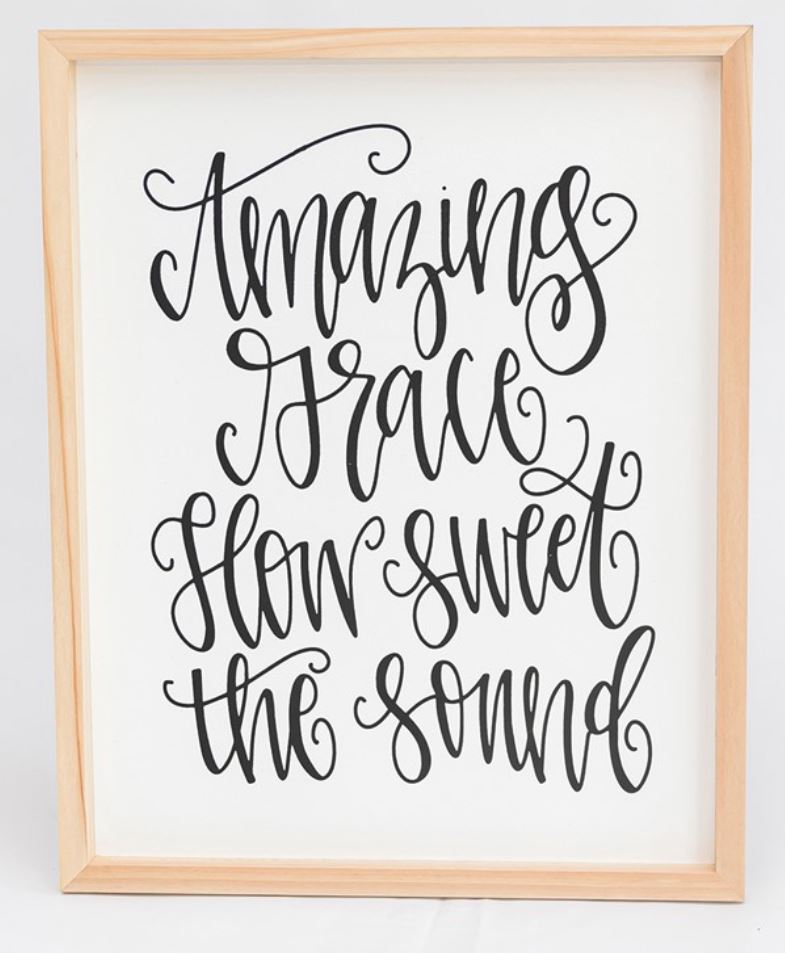 Amazing
Grace
How sweet
the sound